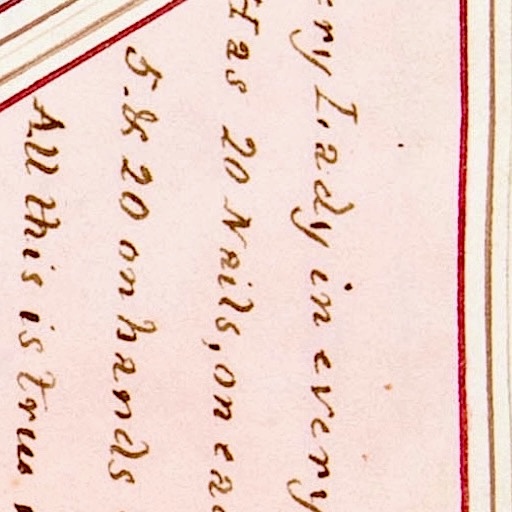 ry Lady in every
Has 20 Nails, on ea
5 & 20 on hands
All this is true